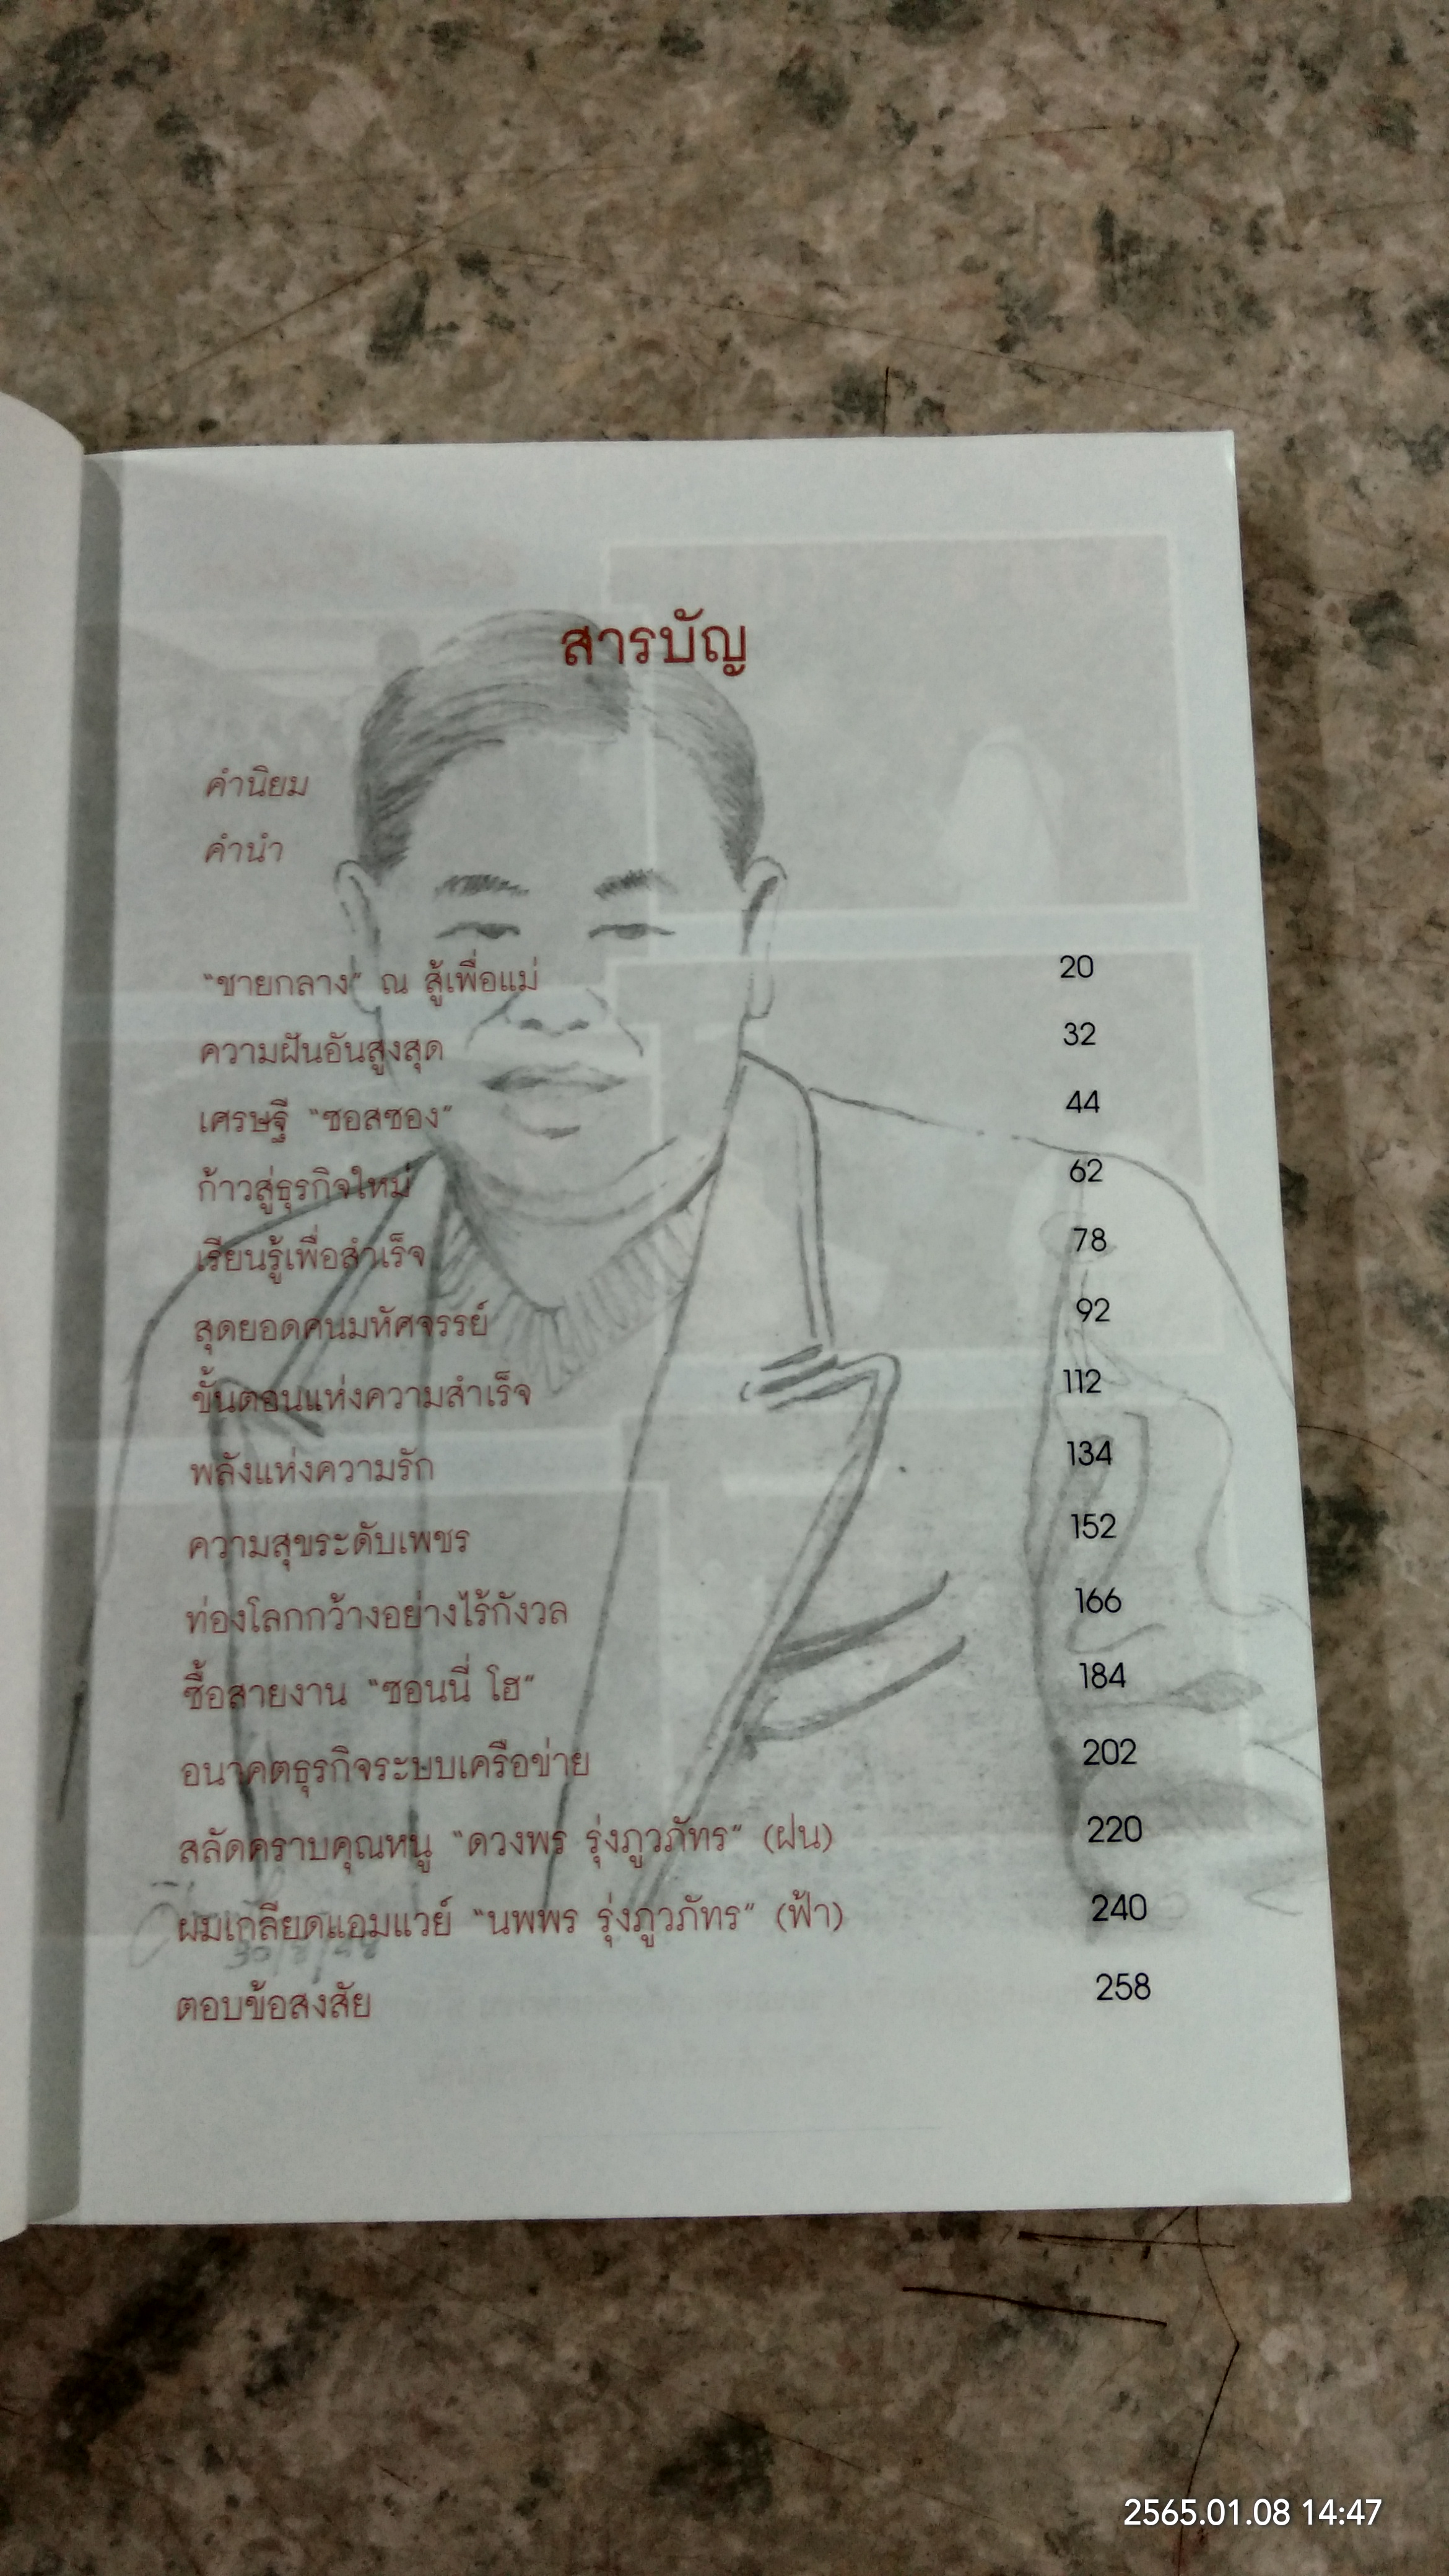 สารบัญ
คำนิยม
คำนำ
"ชายกลาง" ณ สู้เพื่อแม่ 20
ความฝันอันสูงสุด 32
เศรษฐี "ซอสซอง" 44
ก้าวสู่ธุรกิจใหม่ 62
เรียนรู้เพื่อสำเร็จ 78
สุดยอดคนมหัศจรรย์ 92
ขั้นตอนแห่งความสำเร็จ 112
พลังแห่งความรัก 134
ความสุขระดับเพชร 152
ท่องโลกกว้างอย่างไร้กังวล 166
ซื้อสายงาน "ซอนนี่ โฮ" 184
อนาคตธุรกิจระบบเครือข่าย 202
สลัดคราบคุณหนู "ดวงพร รุ่งภูวภัทร" (ฝน) 220
ผมเกลียดแอมแวย์ "นพพร รุ่งภูวภัทร" (ฟ้า) 240
ตอบข้อสงสัย 258
2565.01.08 14:47